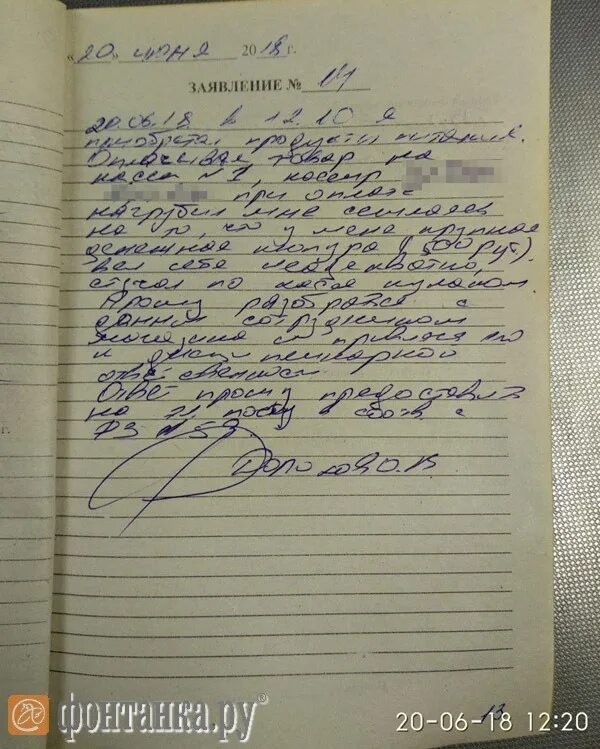 «20» июня 2018 г.
ЗАЯВЛЕНИЕ № 14
20.06.18 в 12.10 я
приобретал продукты питания.
Оплачивая товар на
кассе №1, кассир
при оплате
нагрубил мне ссылаясь
на то, что у меня крупная
денежная купюра (500 руб).
Вел себя неадекватно,
стучал по кассе кулаком.
Прошу разобраться с
данным сотрудником
магазина и привлечь его
к дисциплинарной
ответственности
Ответ прошу предоставить
на эл. почту в соотв. с
ФЗ №59.
О.В.
г.
13
фонтанка.ру®
20-06-18 12:20